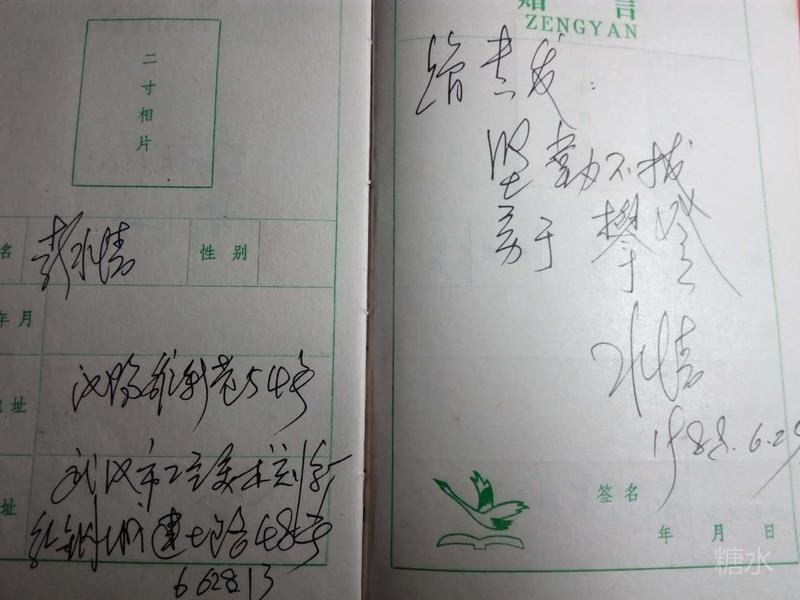 二寸相片
名 彭水清 性别
年月
址 汉阳 54号
址 武汉市工艺美术
红钢城 48号
662813
赠言
ZENGYAN
赠 友:
坚 不拔
勇于攀登
水清
1988.6.25
签名
年 月 日
糖水